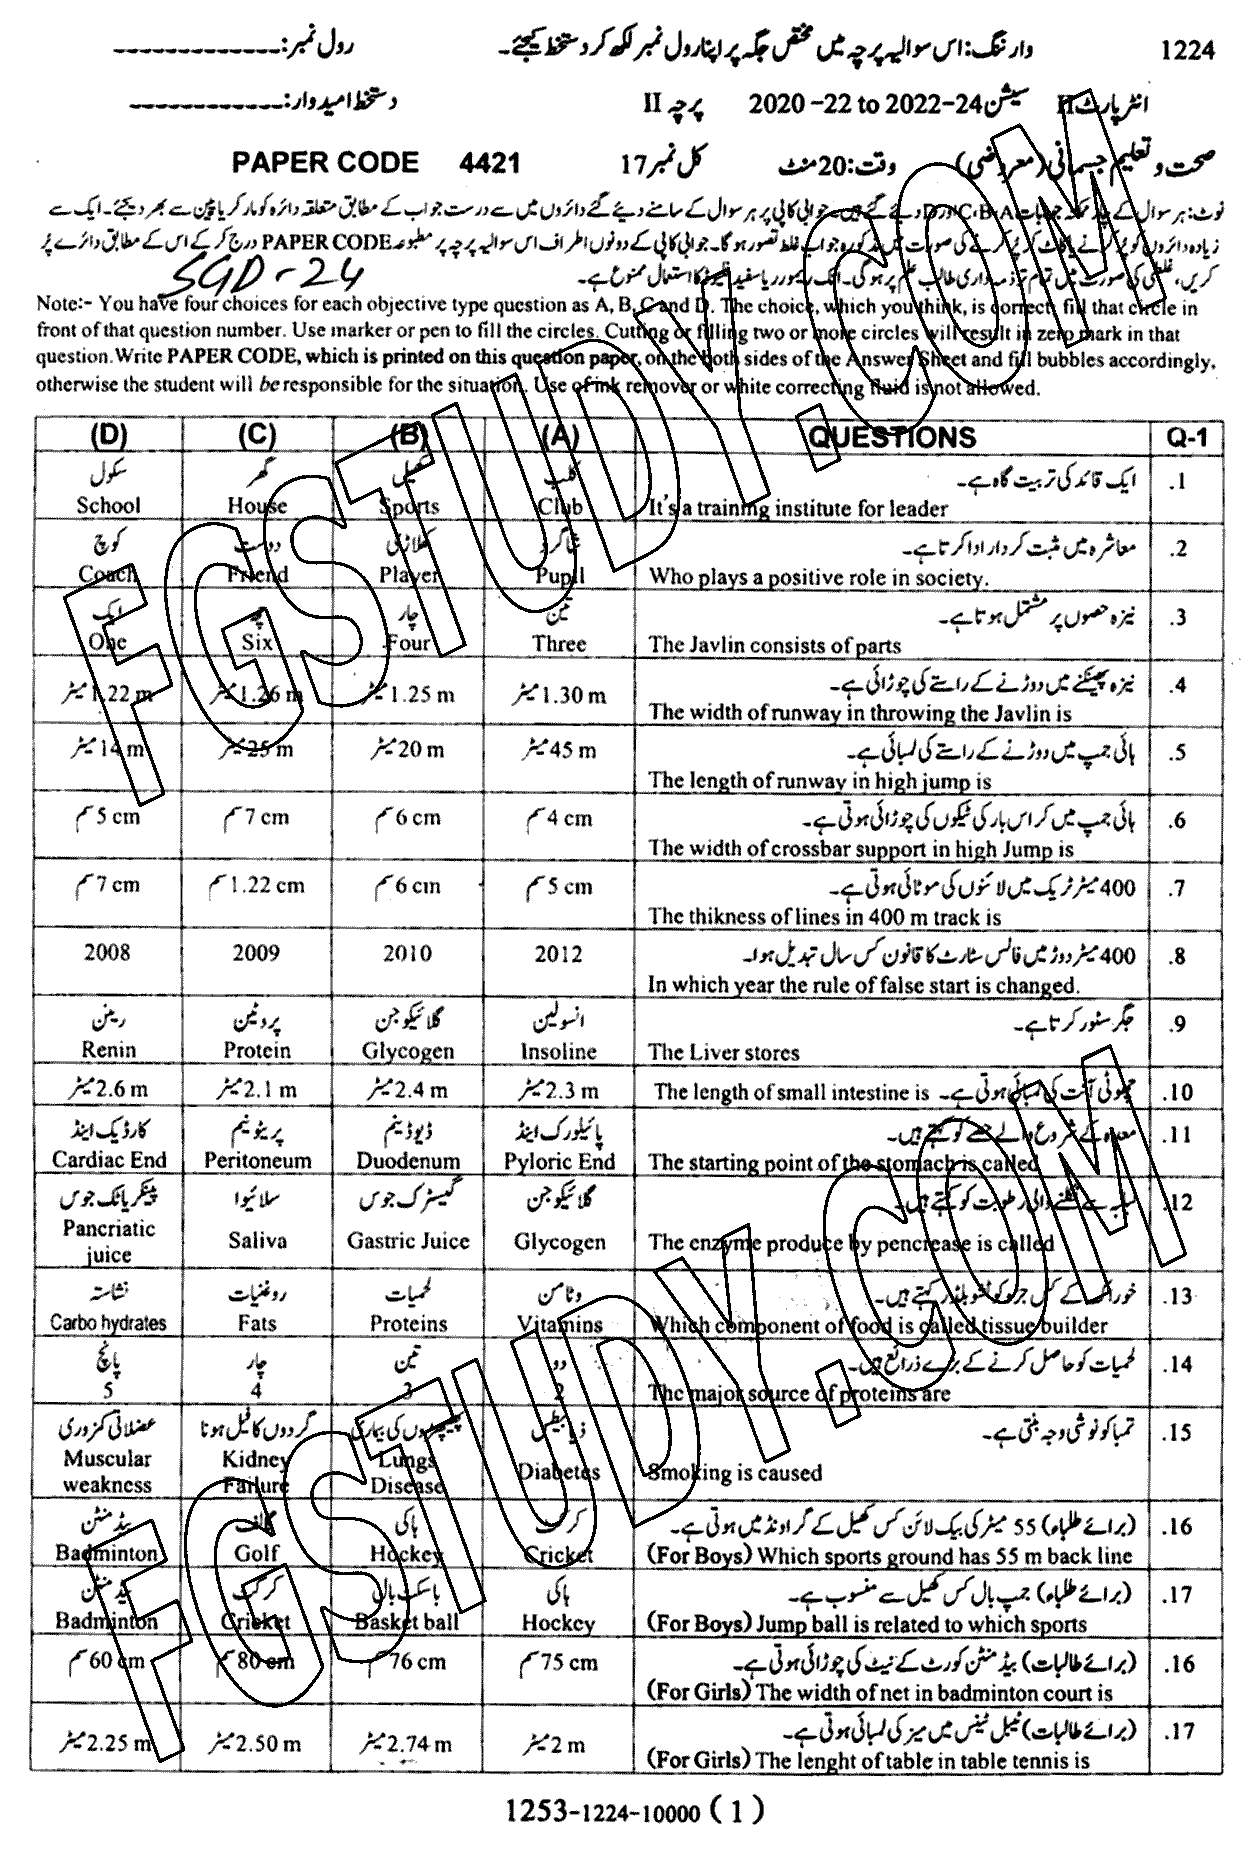 1224 وارننگ: اس سوالیہ پرچہ میں مختص جگہ پر اپنا رول نمبر لکھ کر دستخط کیجئے۔ رول نمبر: -------------
انٹر پارٹ II سیشن 2020-22 to 2022-24 پرچہ II دستخط امیدوار: ------------
صحت و تعلیم جسمانی (معروضی) وقت: 20 منٹ کل نمبر 17 PAPER CODE 4421
نوٹ: ہر سوال کے چار ممکنہ جوابات A، B، C اور D دیئے گئے ہیں۔ جوابی کاپی پر ہر سوال کے سامنے دیئے گئے دائروں میں سے درست جواب کے مطابق متعلقہ دائرہ کو مارکر یا پین سے بھر دیجئے۔ ایک سے
زیادہ دائروں کو پُر کرنے یا کاٹ کر پُر کرنے کی صورت میں مذکورہ جواب غلط تصور ہوگا۔ جوابی کاپی کے دونوں اطراف اس سوالیہ پرچہ پر مطبوعہ PAPER CODE درج کر کے اس کے مطابق دائرے پُر
کریں، غلطی کی صورت میں تمام تر ذمہ داری طالب علم پر ہوگی۔ انک ریموور یا سفید فلیوڈ کا استعمال ممنوع ہے۔
SGD-24
Note:- You have four choices for each objective type question as A, B, C and D. The choice, which you think, is correct, fill that circle in
front of that question number. Use marker or pen to fill the circles. Cutting or filling two or more circles will result in zero mark in that
question. Write PAPER CODE, which is printed on this question paper, on the both sides of the Answer Sheet and fill bubbles accordingly,
otherwise the student will be responsible for the situation. Use of ink remover or white correcting fluid is not allowed.
(D) (C) (B) (A) QUESTIONS Q-1
سکول گھر کھیل کلب ایک قائد کی تربیت گاہ ہے۔ .1
School House Sports Club It's a training institute for leader
کوچ دوست کھلاڑی شاگرد معاشرہ میں مثبت کردار ادا کرتا ہے۔ .2
Coach Friend Player Pupil Who plays a positive role in society.
ایک چھ چار تین نیزہ حصوں پر مشتمل ہوتا ہے۔ .3
One Six Four Three The Javlin consists of parts
1.22 m میٹر 1.26 m میٹر 1.25 m میٹر 1.30 m میٹر نیزہ پھینکنے میں دوڑنے کے راستے کی چوڑائی ہے۔ .4
The width of runway in throwing the Javlin is
14 m میٹر 25 m میٹر 20 m میٹر 45 m میٹر ہائی جمپ میں دوڑنے کے راستے کی لمبائی ہے۔ .5
The length of runway in high jump is
5 cm سم 7 cm سم 6 cm سم 4 cm سم ہائی جمپ میں کراس بار کی ٹیکوں کی چوڑائی ہوتی ہے۔ .6
The width of crossbar support in high Jump is
7 cm سم 1.22 cm سم 6 cm سم 5 cm سم 400 میٹر ٹریک میں لائنوں کی موٹائی ہوتی ہے۔ .7
The thikness of lines in 400 m track is
2008 2009 2010 2012 400 میٹر دوڑ میں فالس سٹارٹ کا قانون کس سال تبدیل ہوا۔ .8
In which year the rule of false start is changed.
رینن پروٹین گلائیکوجن انسولین جگر سٹور کرتا ہے۔ .9
Renin Protein Glycogen Insoline The Liver stores
2.6 m میٹر 2.1 m میٹر 2.4 m میٹر 2.3 m میٹر The length of small intestine is چھوٹی آنت کی لمبائی ہوتی ہے۔ .10
کارڈیک اینڈ پریٹونیم ڈیوڈینم پائیلورک اینڈ معدہ کے شروع والے حصے کو کہتے ہیں۔ .11
Cardiac End Peritoneum Duodenum Pyloric End The starting point of the stomach is called
پینکریاٹک جوس سلائیوا گیسٹرک جوس گلائیکوجن لبلبہ سے نکلنے والی رطوبت کو کہتے ہیں۔ .12
Pancriatic juice Saliva Gastric Juice Glycogen The enzyme produce by pencrease is called
نشاستہ روغنیات لحمیات وٹامن خوراک کے کس جزو کو ٹشو بلڈر کہتے ہیں۔ .13
Carbo hydrates Fats Proteins Vitamins Which component of food is called tissue builder
پانچ چار تین دو لحمیات کو حاصل کرنے کے بڑے ذرائع ہیں۔ .14
5 4 3 2 The major source of proteins are
عضلاتی کمزوری گردوں کا فیل ہونا پھیپھڑوں کی بیماری ذیابیطس تمباکو نوشی وجہ بنتی ہے۔ .15
Muscular weakness Kidney Failure Lungs Disease Diabetes Smoking is caused
بیڈمنٹن گالف ہاکی کرکٹ (برائے طلباء) 55 میٹر کی بیک لائن کس کھیل کے گراونڈ میں ہوتی ہے۔ .16
Badminton Golf Hockey Cricket (For Boys) Which sports ground has 55 m back line
بیڈمنٹن کرکٹ باسکٹ بال ہاکی (برائے طلباء) جمپ بال کس کھیل سے منسوب ہے۔ .17
Badminton Cricket Basket ball Hockey (For Boys) Jump ball is related to which sports
60 cm سم 80 cm سم 76 cm سم 75 cm سم (برائے طالبات) بیڈمنٹن کورٹ کے نیٹ کی چوڑائی ہوتی ہے۔ .16
(For Girls) The width of net in badminton court is
2.25 m میٹر 2.50 m میٹر 2.74 m میٹر 2 m میٹر (برائے طالبات) ٹیبل ٹینس میں میز کی لمبائی ہوتی ہے۔ .17
(For Girls) The lenght of table in table tennis is
1253-1224-10000 (1)
FGSTUDY.COM
FGSTUDY.COM